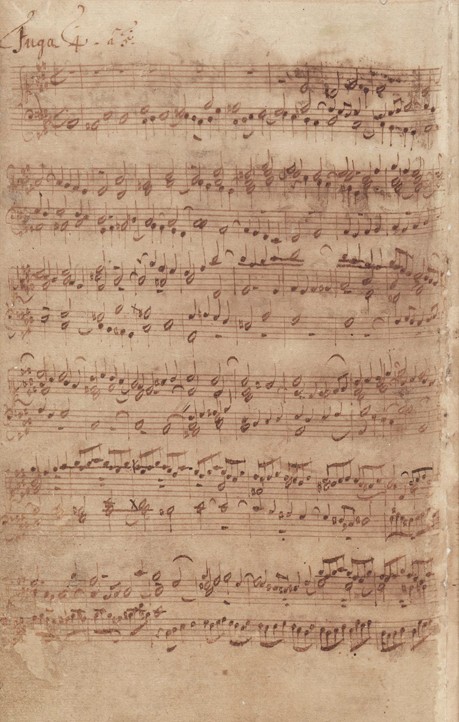 Fuga 4. a 5.